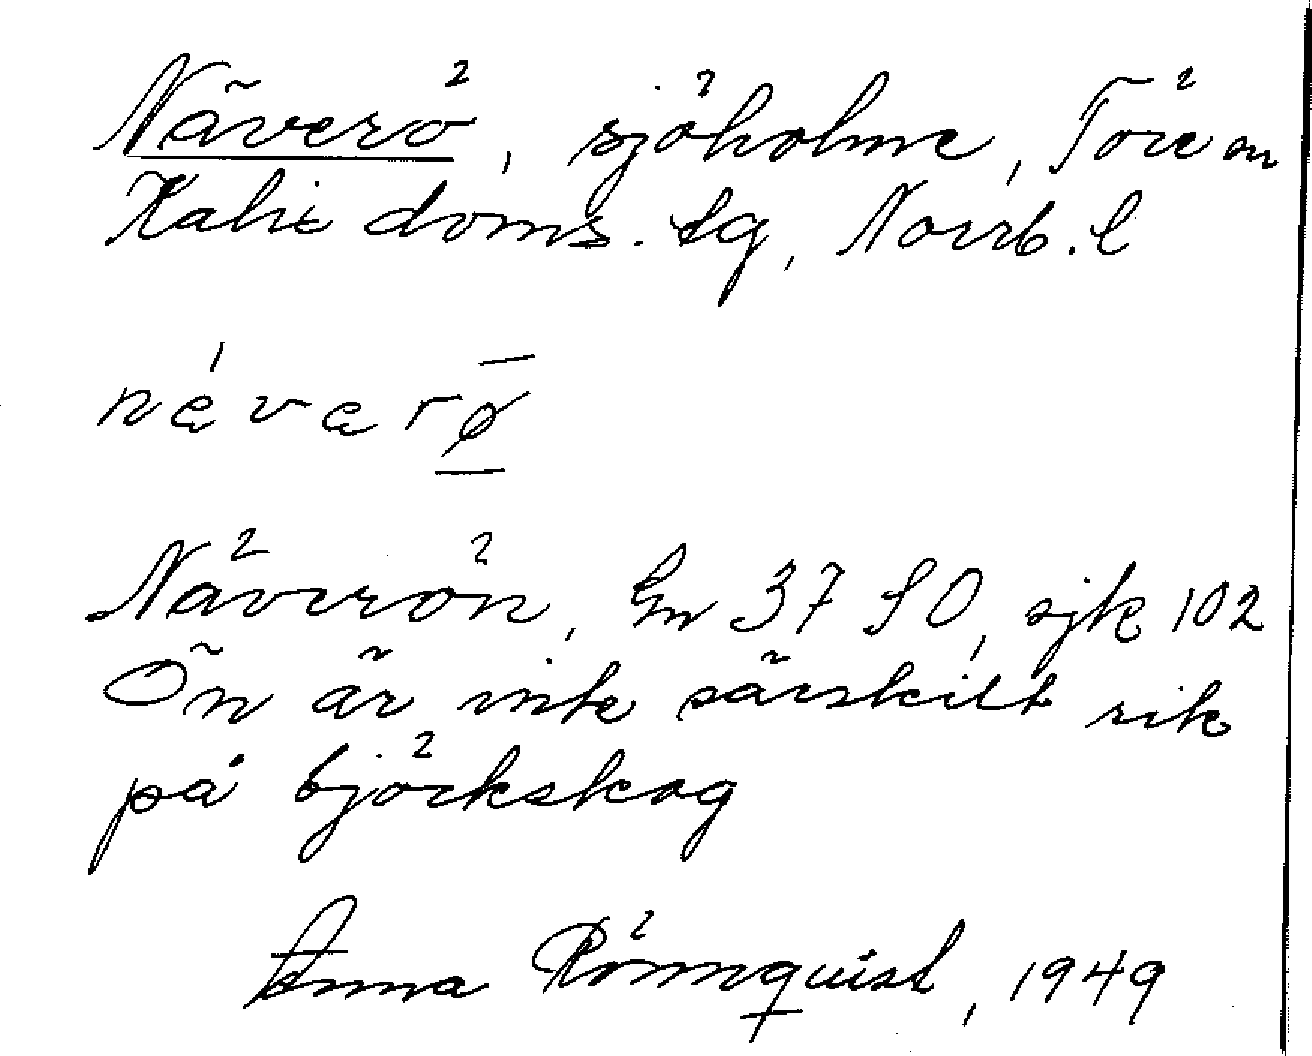 Näverö, sjöholme, Töre sn
Kalix doms. lg, Norrb. l
névarø̄
Näverön, Gn 37 SO, sjk 102
Ön är inte särskilt rik
på björkskog
Anna Rönnquist, 1949